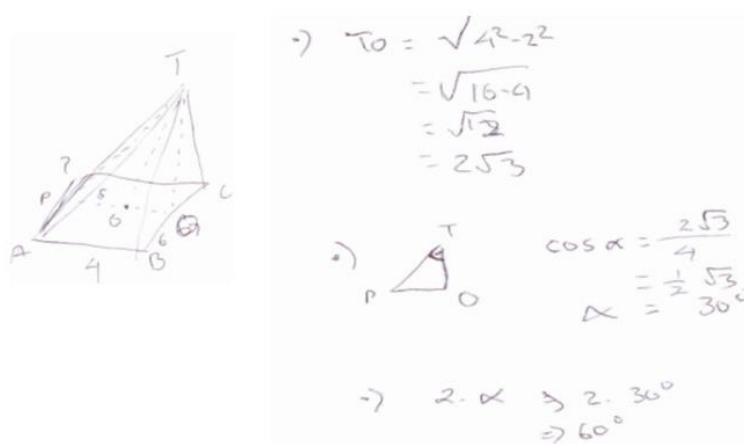 T
P
A
4
B
6
C
O
•) TO = √4²-2²
= √16-4
= √12
= 2√3
•)
T
P
O
cos α = 2√3/4
= 1/2 √3
α = 30°
→ 2. α ⇒ 2. 30°
⇒ 60°